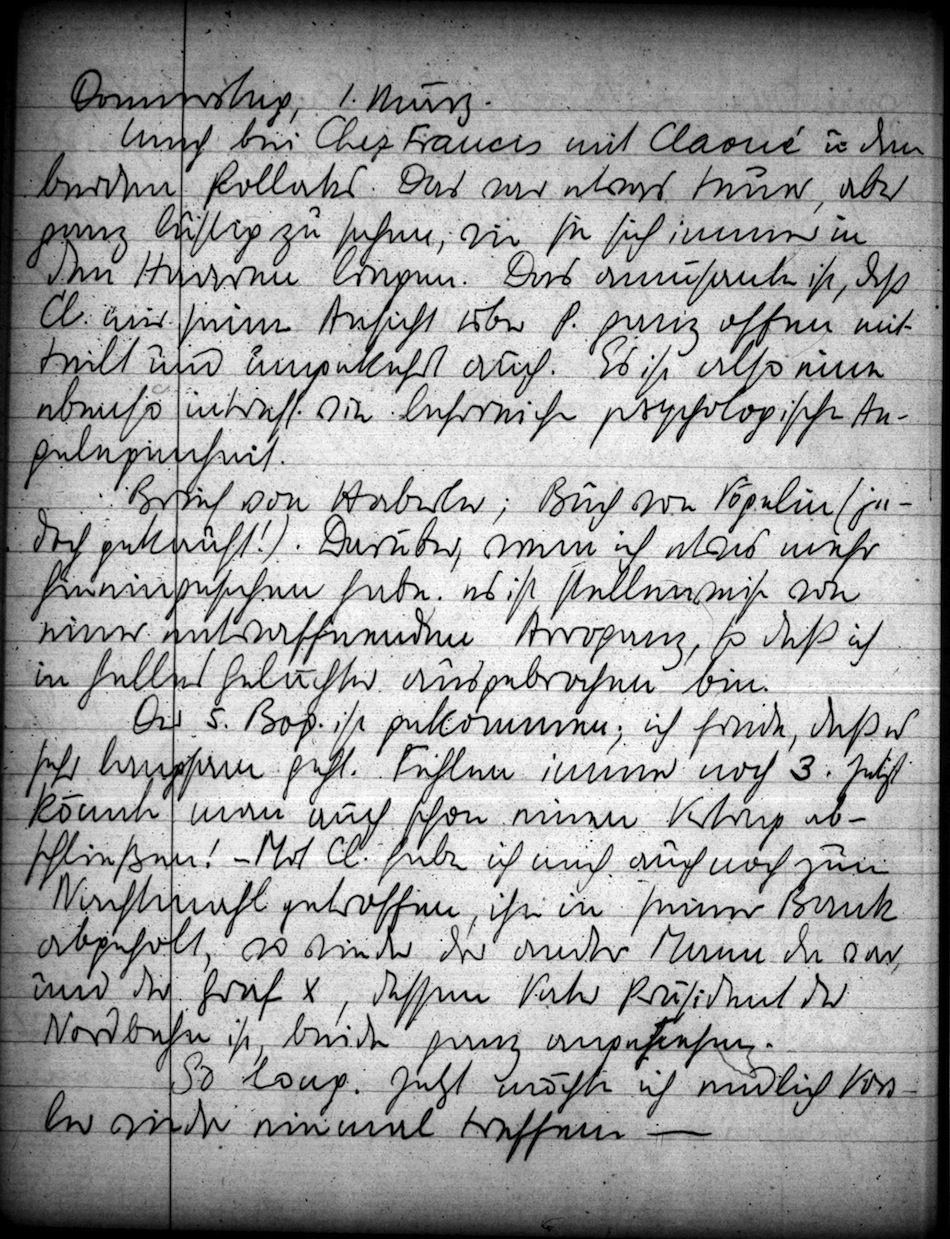 Donnerstag, 1. März.
Noch bei Chez Francis mit Claoué u. den
beiden Pollaks. Das war etwas teuer, aber
ganz lustig zu sehen, wie sie sich immer in
den Haaren liegen. Das amüsante ist, daß
Cl. mir seine Ansicht über P. ganz offen mit-
teilt und umgekehrt auch. Es ist also eine
ebenso interess. wie lehrreiche psychologische An-
gelegenheit.
Brief von Haberler; Buch von Vögelin (je-
doch gekauft!). Darüber, wenn ich etwas mehr
hineingesehen habe. es ist stellenweise von
einer entwaffnenden Arroganz, so daß ich
in helles Gelächter ausgebrochen bin.
Der 5. Bog. ist gekommen; ich finde, daß er
sehr langsam geht. Fehlen immer noch 3. Jetzt
könnte man auch schon einen Vertrag ab-
schließen! – Mit Cl. habe ich mich auch noch zum
Nachtmahl getroffen, ihn in seiner Bank
abgeholt, wo wieder der andere Mann da war,
und der Graf X, dessen Vater Präsident der
Nordbahn ist, beide ganz angesehen.
So long. Jetzt möchte ich endlich
wieder einmal treffen —